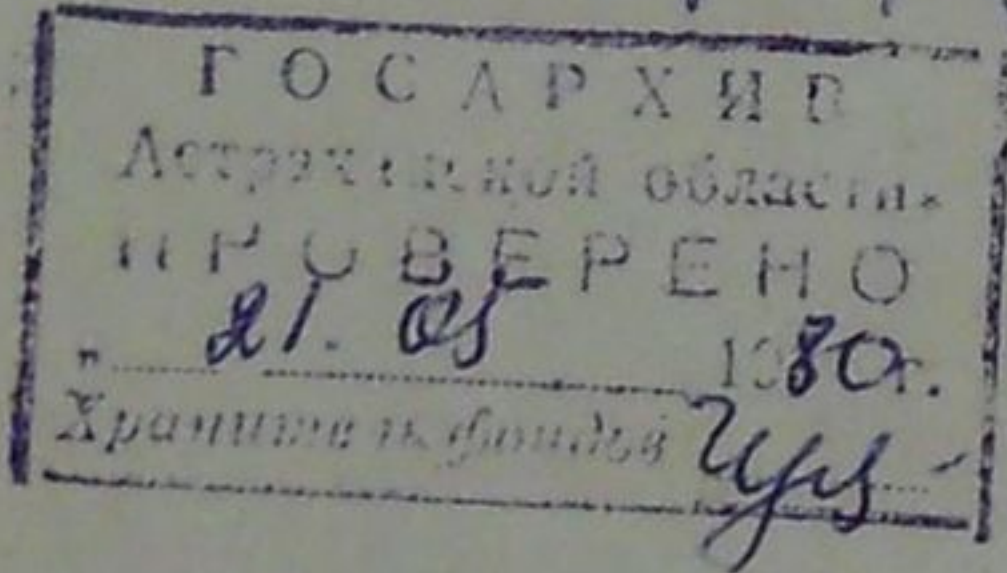 ГОСАРХИВ
Астраханской области
ПРОВЕРЕНО
" 21. 05 1980 г.
Хранитель фондов